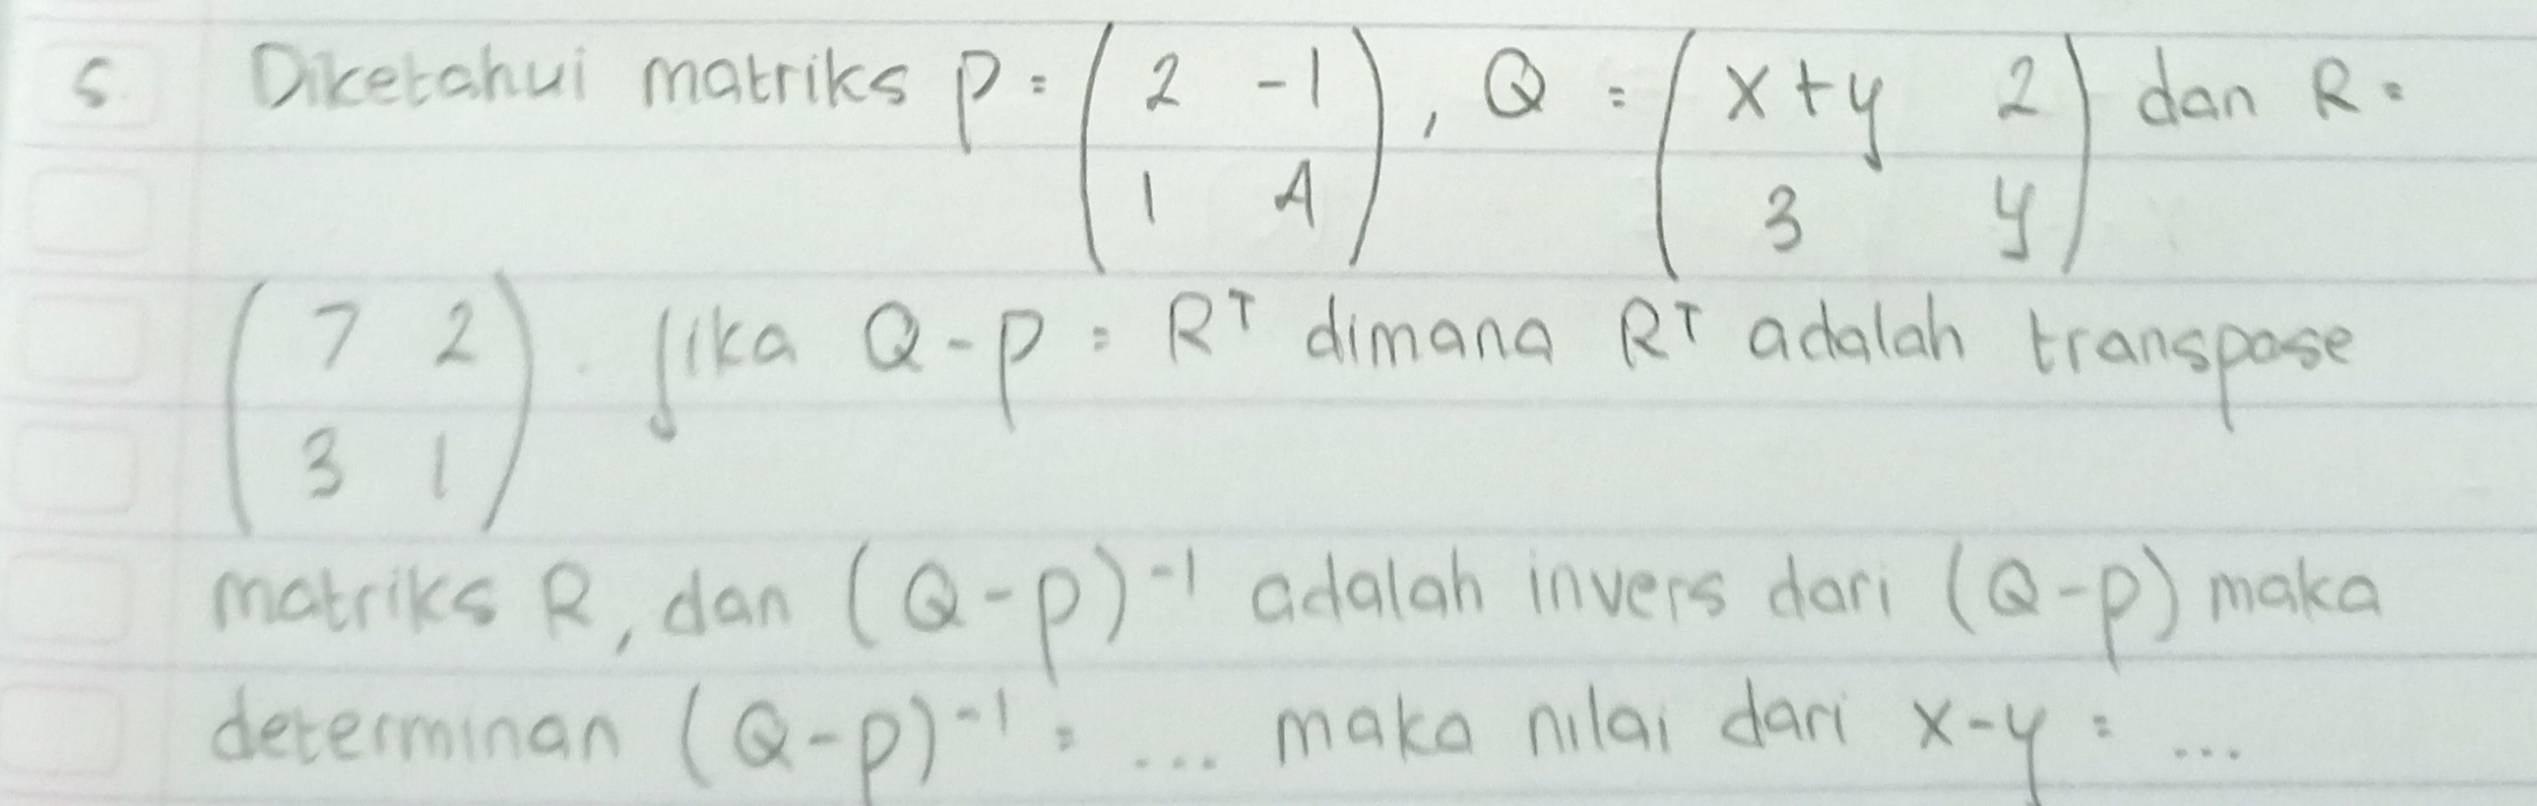 5. Diketahui matriks P = ( 2 -1 ), Q = ( x+y 2 ) dan R =
1 4 3 y
( 7 2 ). Jika Q-P = Rᵀ dimana Rᵀ adalah transpose
3 1
matriks R, dan (Q-P)⁻¹ adalah invers dari (Q-P) maka
determinan (Q-P)⁻¹ = ... maka nilai dari x-y = ...